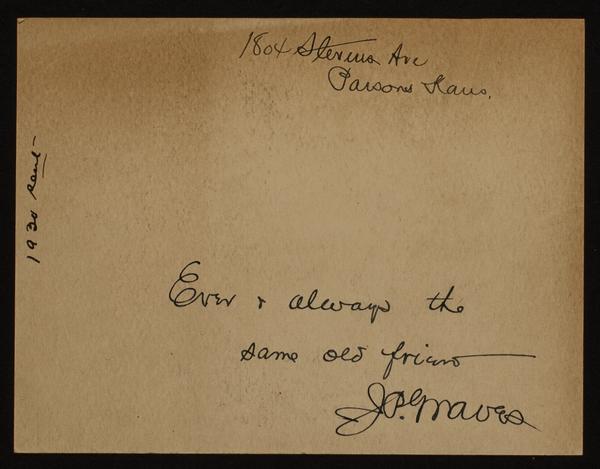 1804 Stevens Ave
Parsons Kans.
1930 sent -
Ever & always the
same old friend
J.P. Graves